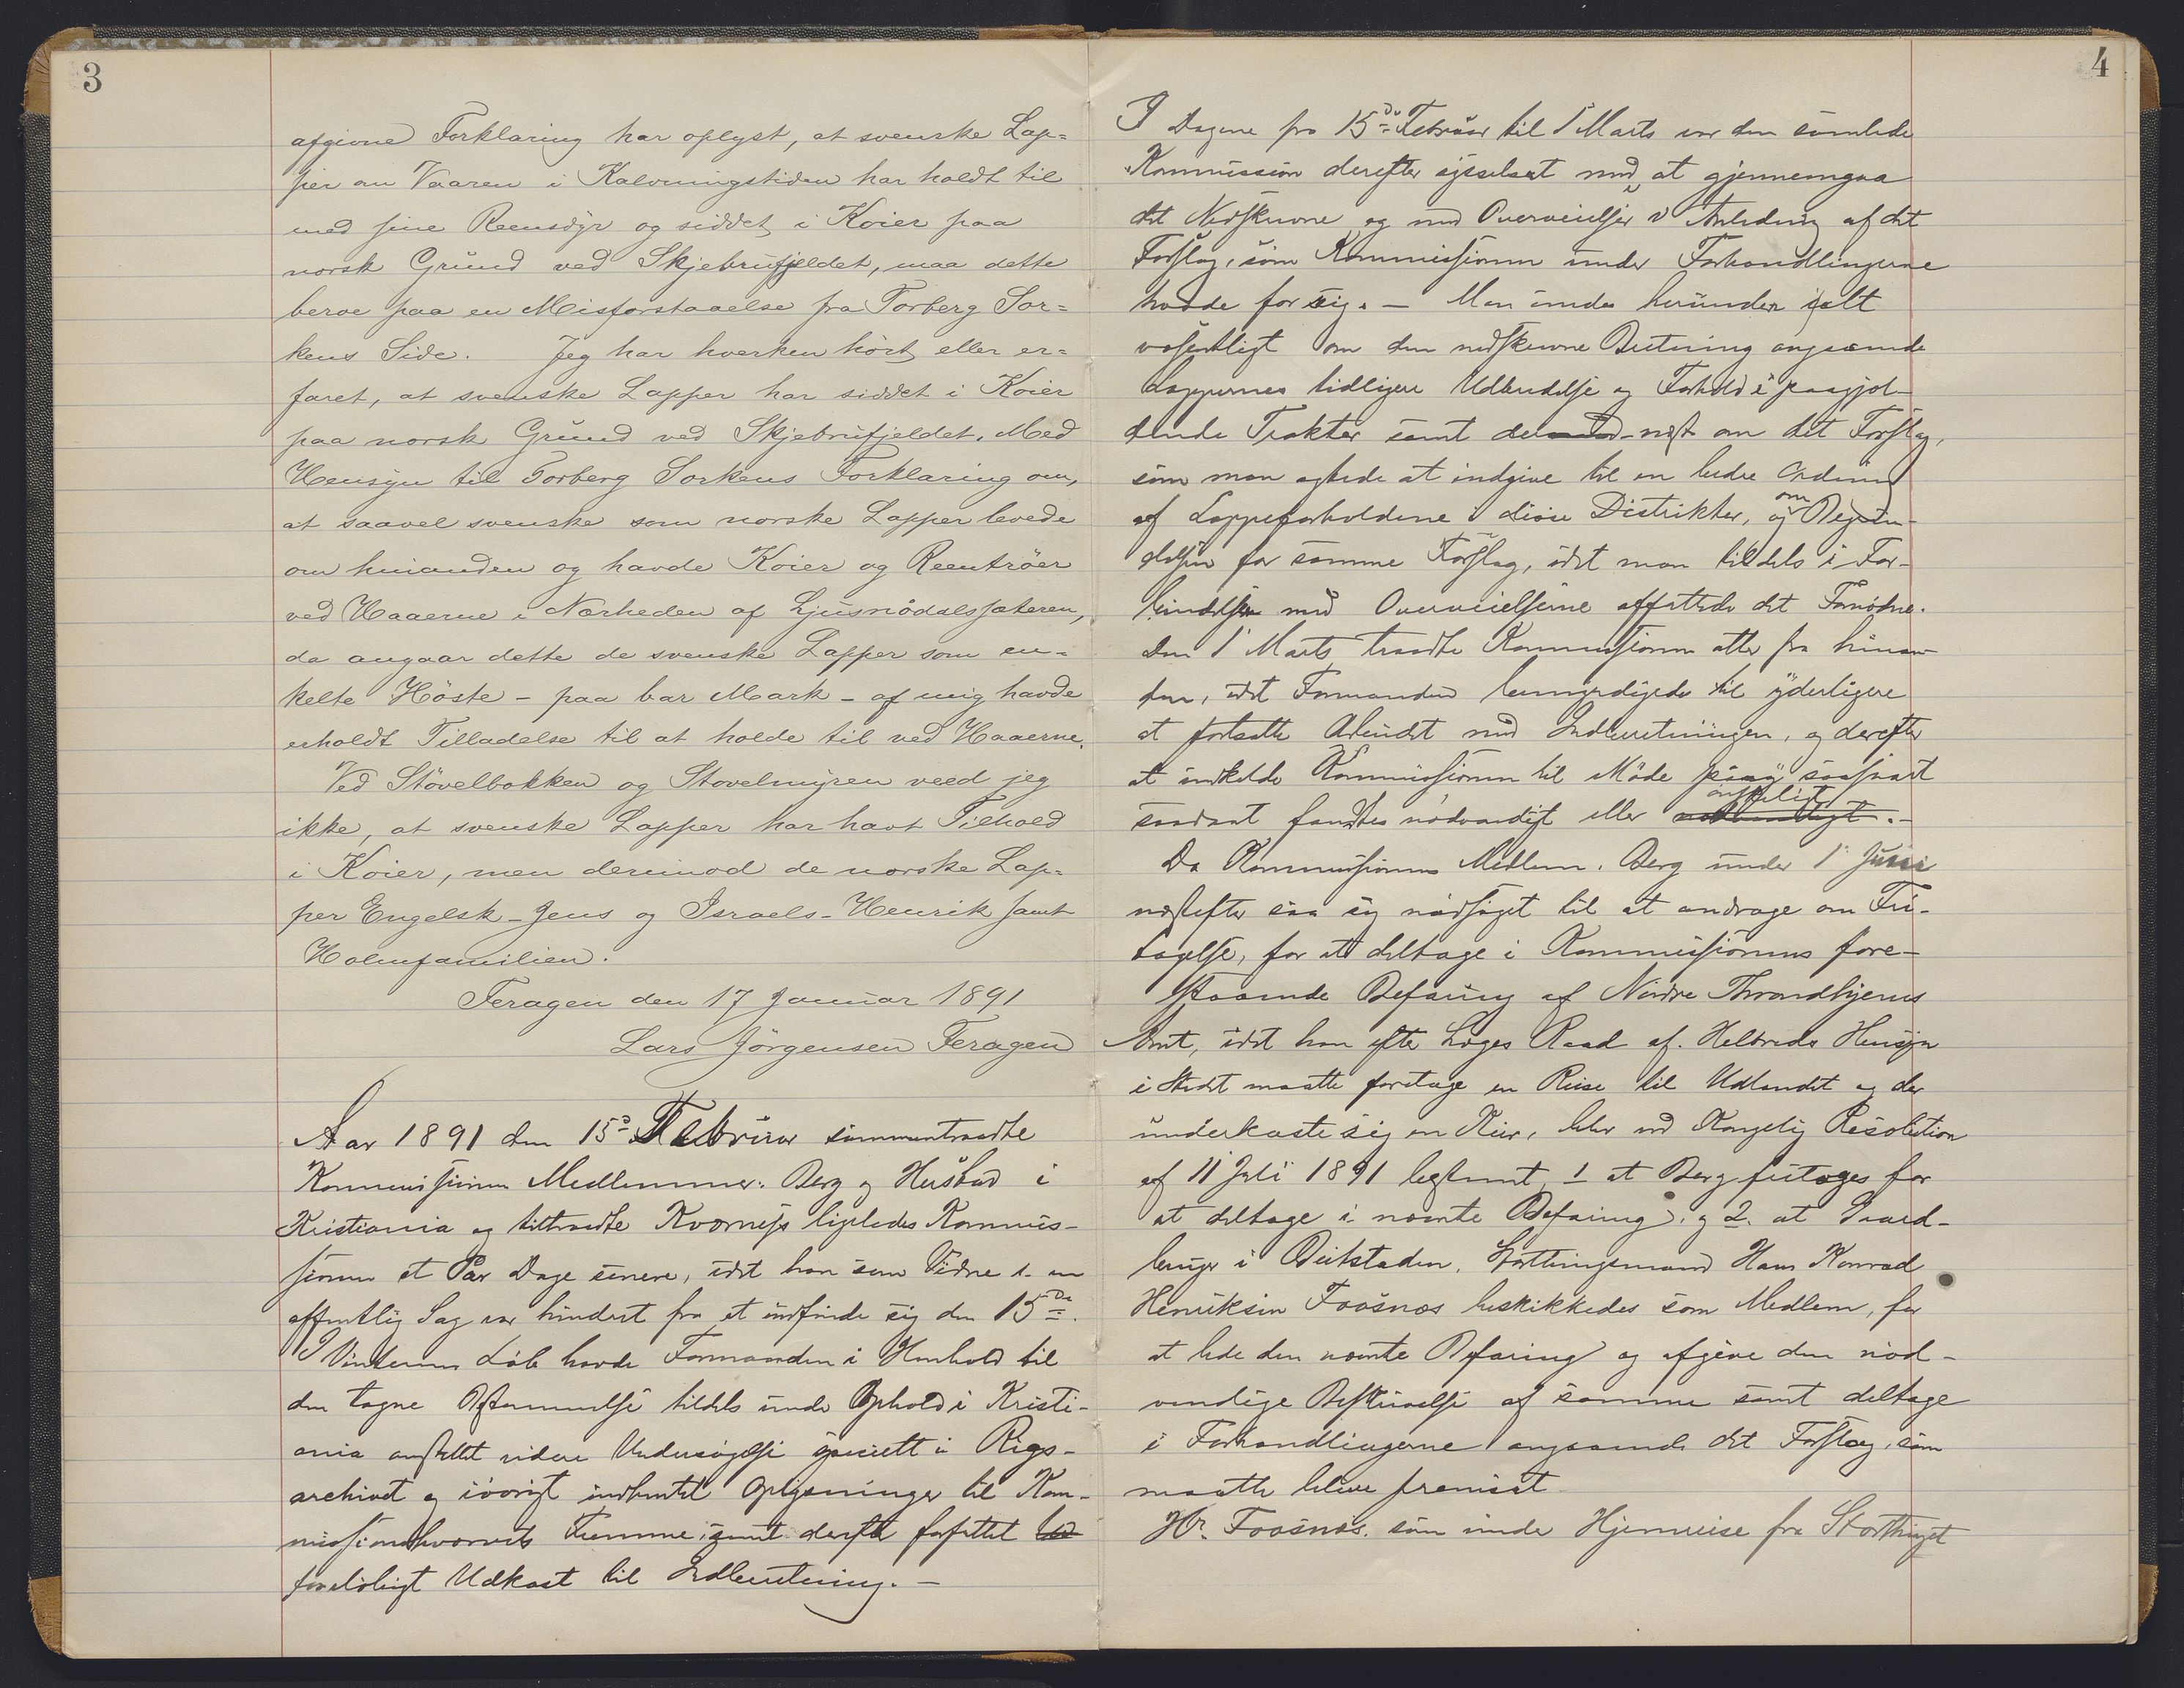 3
afgivne Forklaring har oplyst, at svenske Lap=
per om Vaaren i Kalvningstiden har holdt til
med sine Reensdyr og siddet i Koier paa
norsk Grund ved Skjebrufjeldet, maa dette
beroe paa en Misforstaaelse fra Torberg Sor=
kens Side. Jeg har hverken hört eller er=
faret, at svenske Lapper har siddet i Koier
paa norsk Grund ved Skjebrufjeldet. Med
Hensyn til Torberg Sorkens Forklaring om,
at saavel svenske som norske Lapper levede
om hinanden og havde Koier og Reentröer
ved Haaerne i Nærheden af Ljusnödalssæteren,
da angaar dette de svenske Lapper som en=
kelte Höste - paa bar Mark - af mig havde
erholdt Tilladelse til at holde til ved Haaerne.
Ved Stövelbakken og Stovelmyren veed jeg
ikke, at svenske Lapper har havt Tilhold
i Koier, men derimod de norske Lap=
per Engelsk-Jens og Israels-Henrik samt
Holmfamilien.
Feragen den 17 Januar 1891
Lars Jörgensen Feragen
Aar 1891 den 15de Februar sammentraadte
Kommissionens Medlemmer: Berg og Husbad i
Kristiania og tiltraadte Kvornes ligeledes Kommis-
sionen et Par Dage senere, idet han som Vidne i en
offentlig Sag var hindret fra at indfinde sig den 15de.
I Vinterens Löb havde Formanden i Henhold til
den tagne Bestemmelse tildels under Ophold i Kristi-
ania anstillet videre Undersögelse specielt i Rigs-
archivet og iövrigt indhentet Oplysninger til Kom-
missionshvervets Fremme, samt derefter forfattet
foreløbigt Udkast til Indberetning. -
4
I Dagene fra 15de Februar til 1 Marts var den samlede
Kommission derefter sysselsat med at gjennemgaa
det Nedskrevne og med Overveielser i Anledning af det
Forslag, som Kommissionen under Forhandlingerne
havde for sig. - Man enedes herunder i alt
væsentligt om den nedskrevne Beretning angaaende
Lappernes tidligere Udbredelse og Forhold i paagjæl-
dende Trakter samt dernæst om det Forslag,
som man agtede at indgive til en bedre Ordning
af Lappeforholdene i disse Distrikter, og om Begrun-
delsen for samme Forslag, idet man tildels i For-
bindelse med Overveielserne affattede det Fornødne.
Den 1 Marts traadte Kommissionen atter fra hinan-
den, idet Formanden bemyndigedes til yderligere
at fortsætte Arbeidet med Indberetningen, og derefter
at indkalde Kommissionen til Möde paany saasnart
saadant fandtes nödvendigt eller önskeligt. -
Da Kommissionens Medlem, Berg under 1 Juni
næstefter saa sig nødsaget til at andrage om Fri-
tagelse, for at deltage i Kommissionens fore-
staaende Befaring af Nordre Throndhjems
Amt, idet han efter Læges Raad af Helbreds Hensyn
i Stedet maatte foretage en Reise til Udlandet og der
underkaste sig en Kur, blev ved Kongelig Resolution
af 11 Juli 1891 bestemt, 1 at Berg fritages for
at deltage i nævnte Befaring, og 2. at Gaard-
bruger i Beitstaden, Storthingsmand Hans Konrad
Henriksen Foosnæs beskikkedes som Medlem, for
at lede den nævnte Befaring og afgive den nöd-
vendige Beskrivelse af samme samt deltage
i Forhandlingerne angaaende det Forslag, som
maatte blive fremsat.
Hr. Foosnæs, som under Hjemreise fra Storthinget